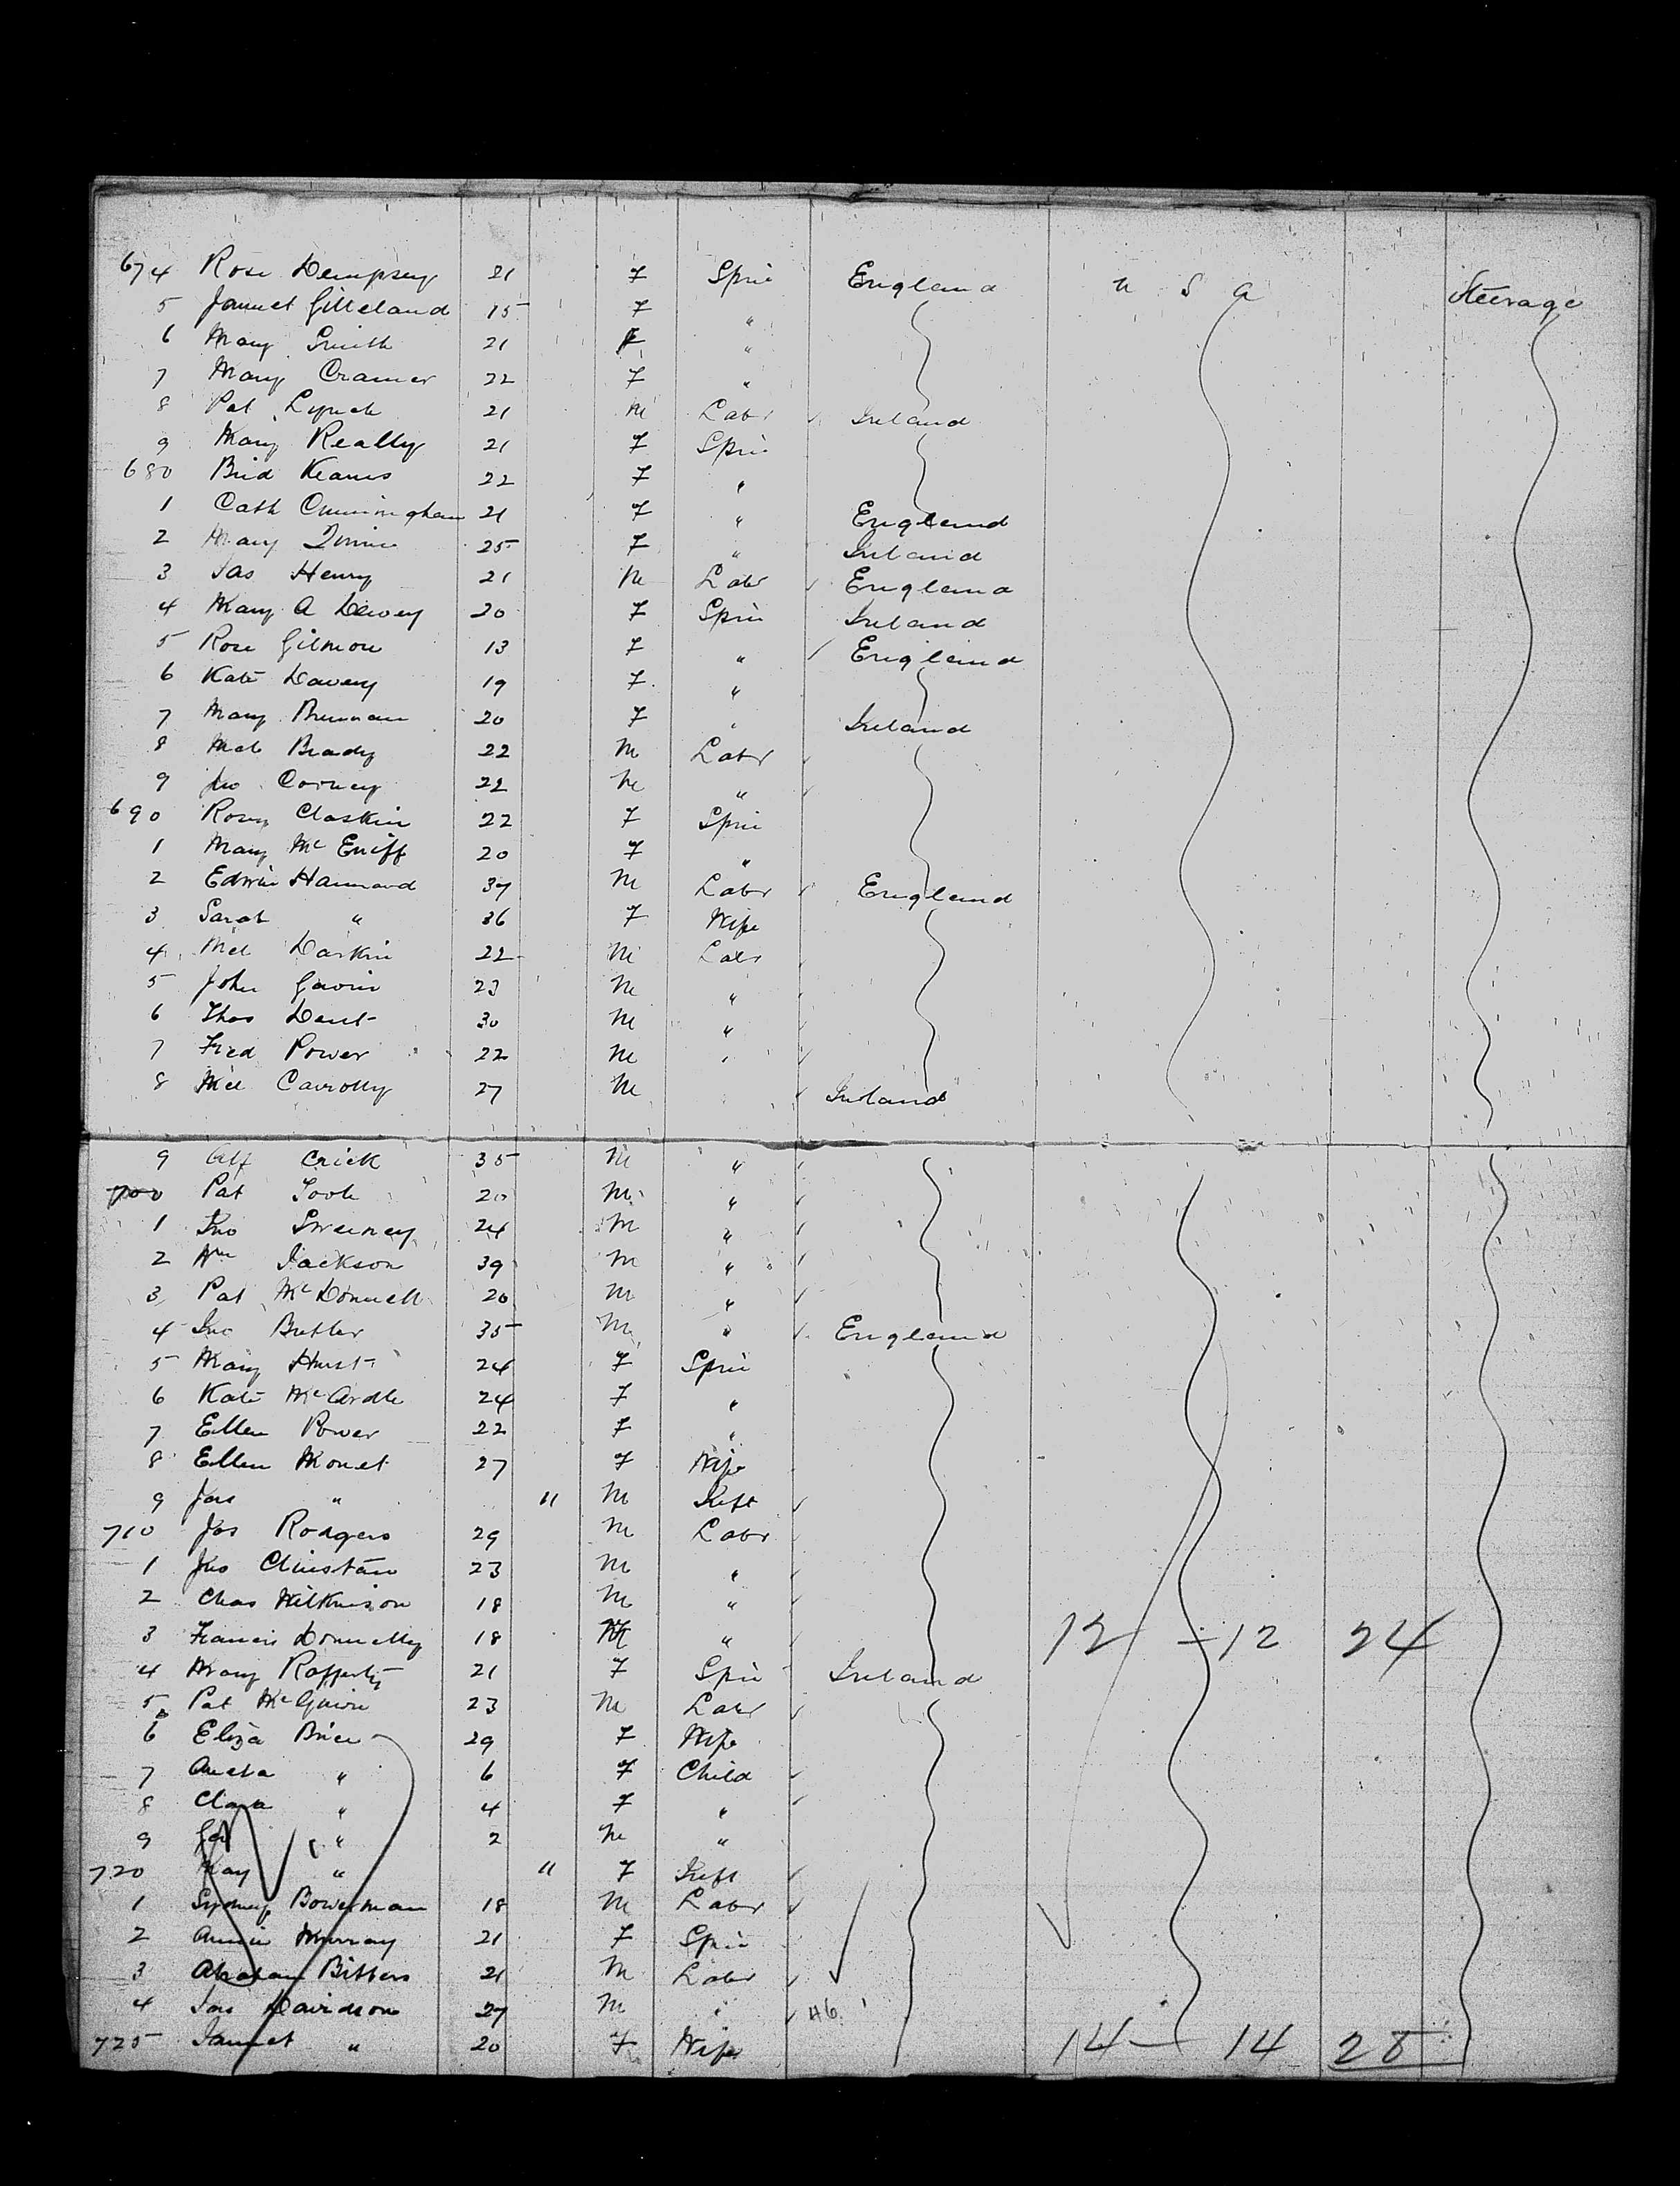 674 Rose Dempsey 21 F Spin England U S A Steerage
5 Jannet Gilleland 15 F "
6 Mary Smith 21 F "
7 Mary Cramer 22 F "
8 Pat Lynch 21 M Labr Ireland
9 Mary Really 21 F Spin
680 Brid Keanes 22 F "
1 Cath Cunningham 21 F " England
2 Mary 25 F " Ireland
3 Jas Henry 21 M Labr England
4 Mary A Dewey 20 F Spin Ireland
5 Rose Gilmore 13 F " England
6 Kate Davery 19 F "
7 Mary Brennan 20 F " Ireland
8 Brady 22 M Labr
9 Jno Corney 22 M "
690 Rosey Claskin 22 F Spin
1 Mary McEniff 20 F "
2 Edwin Hammond 37 M Labr England
3 Sarah " 36 F Wife
4 Darkin 22 M Labr
5 John Gavin 23 M "
6 Thos Dent 30 M "
7 Fred Power 22 M "
8 27 M Ireland
9 Alf Crick 35 M "
700 Pat Toole 20 M "
1 Jno Sweeney 24 M "
2 Wm Jackson 39 M "
3 Pat McDonnell 20 M "
4 Jno Butler 35 M " England
5 Mary Hurst 24 F Spin
6 Kate McArdle 24 F "
7 Ellen Power 22 F "
8 Ellen 27 F Wife
9 Jas " " M Inft
710 Jos Rodgers 29 M Labr
1 Jno 23 M "
2 Chas Wilkinson 18 M "
3 Francis Donnelly 18 M " 12 - 12 24
4 Mary Rafferty 21 F Spin Ireland
5 Pat McGuire 23 M Labr
6 Eliza Brice 29 F Wife
7 " 6 F Child
8 Clara " 4 F "
9 " 2 M "
720 May " " F Inft
1 Sydney Bowerman 18 M Labr
2 Annie Murray 21 F Spin
3 Abraham Bitters 21 M Labr
4 Jas Davidson 27 M " 46
725 Jannet " 20 F Wife 14 - 14 28